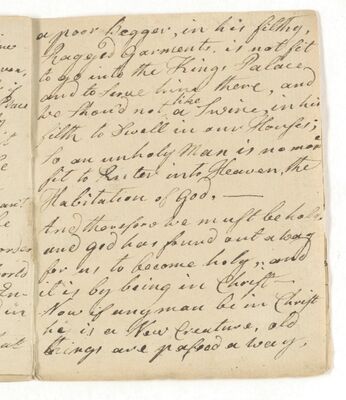 a poor Begger, in his filthy,
Ragged Garments, is not fit
to go into the Kings Palace,
and to Live there, and
like
we shoud not a Swine, in his
filth to Dwell in our Houses;
So an unholy Man is no more
fit to Enter into Heaven, the
Habitation of God. —
And therefore we must be holy,
and god has found out a way
for us to become holy; and
it is by being in Christ —
Now if any man be in Christ
he is a New Creature, old
things are passed a way,